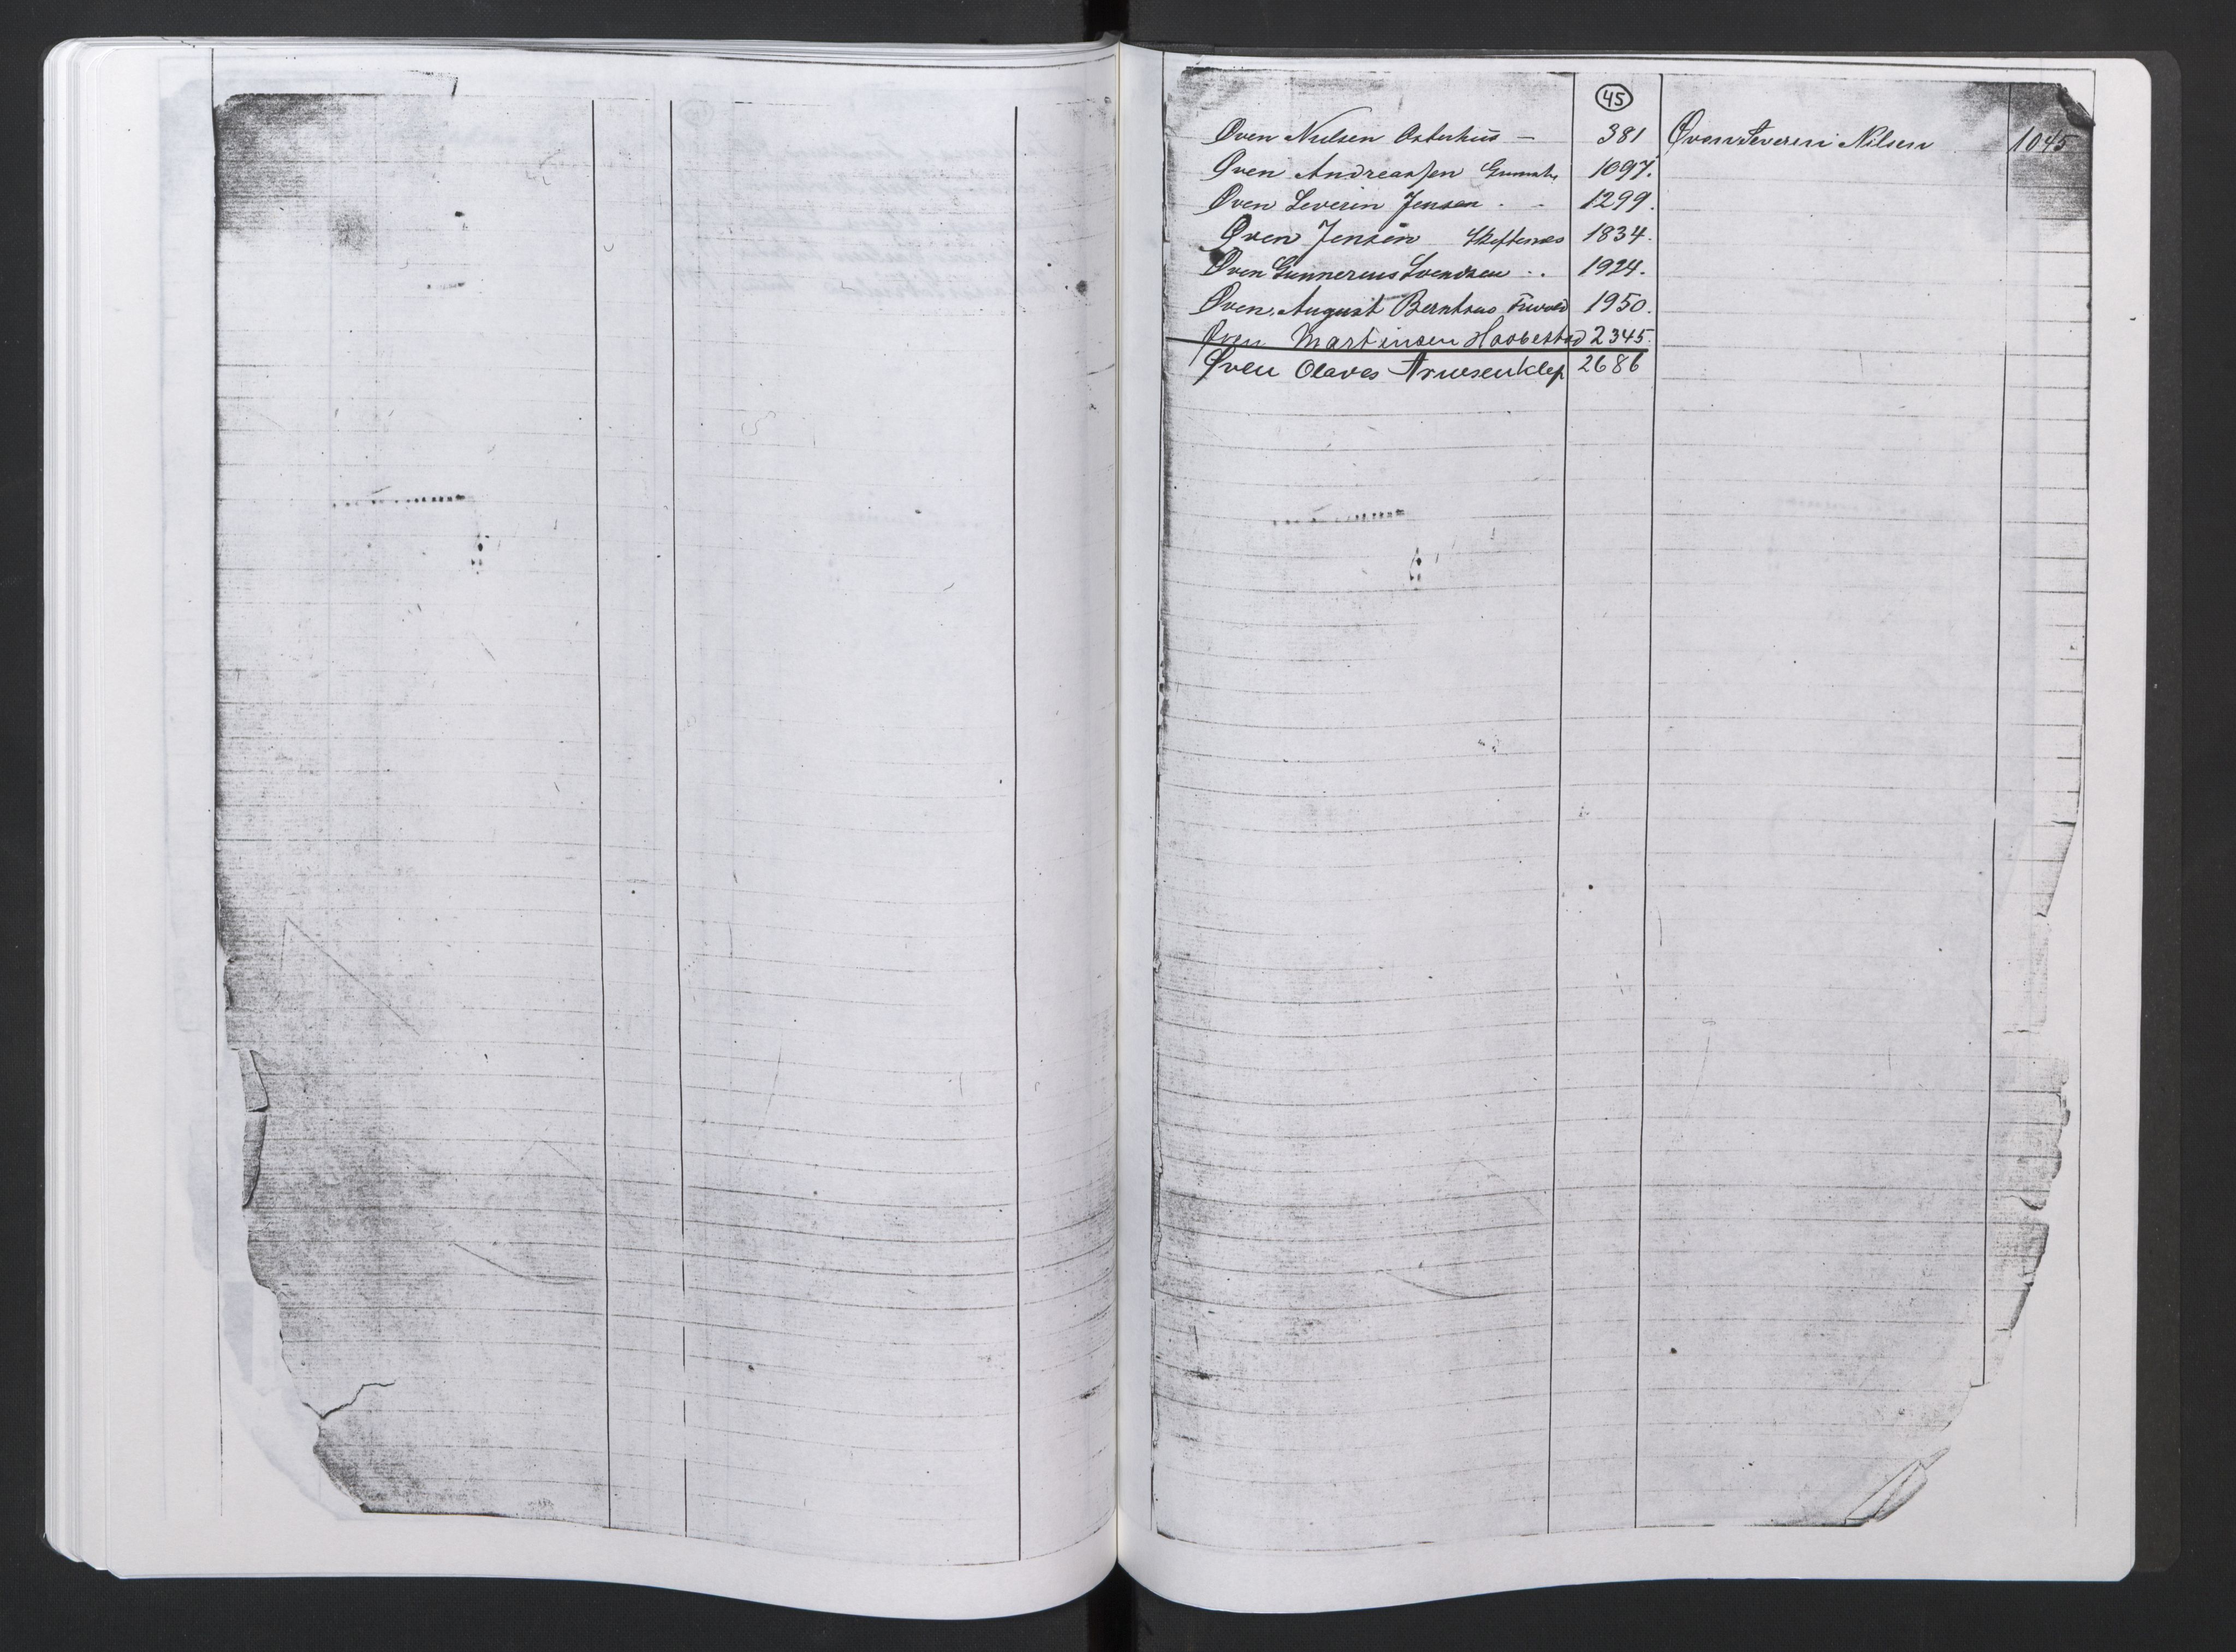 45
Øven Nielsen Osterhus — 381
Øven Severin Nilsen 1045
Øven Andreassen 1097.
Øven Severin Jensen . - 1299.
Øven Jensen 1834.
Øven Gunnerius Svendsen .. 1924.
Øven August Berntsen 1950.
Øven Martinsen Haabestad 2345.
Øven Olaves Arnesen Klep 2686